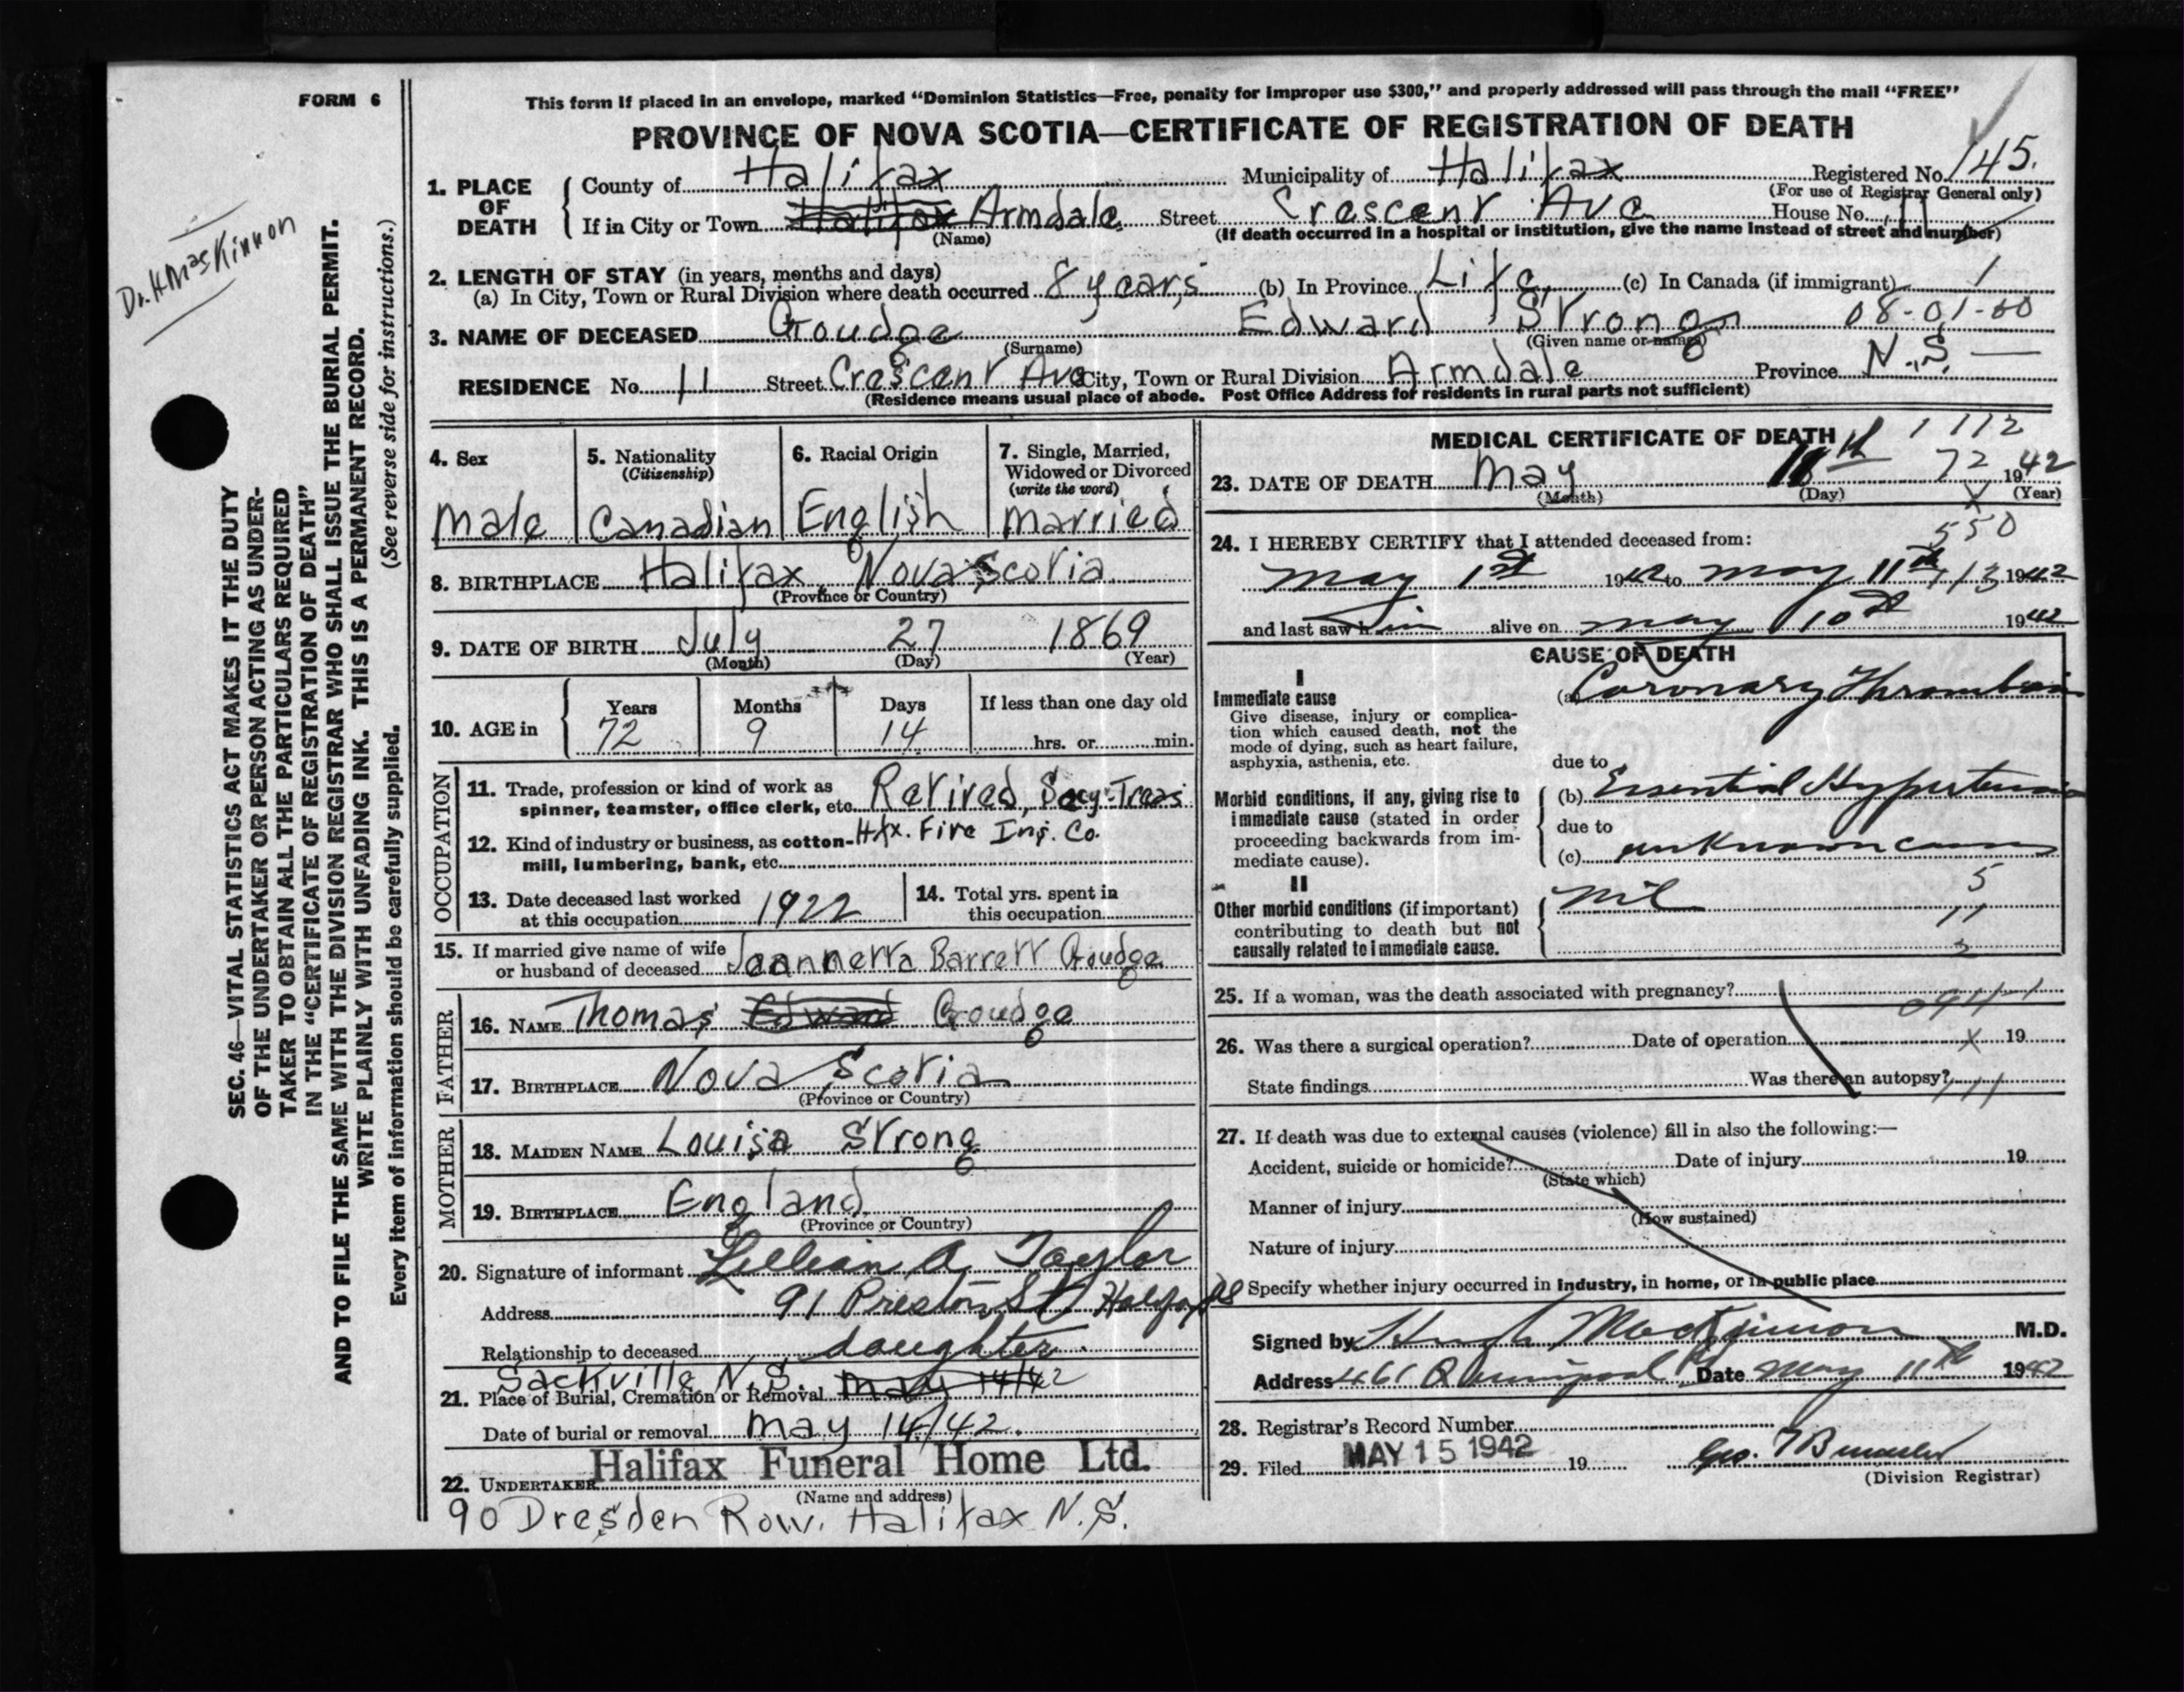 FORM 6
This form if placed in an envelope, marked “Dominion Statistics—Free, penalty for improper use $300,” and properly addressed will pass through the mail “FREE”
PROVINCE OF NOVA SCOTIA—CERTIFICATE OF REGISTRATION OF DEATH
Dr. H MacKinnon
SEC. 46—VITAL STATISTICS ACT MAKES IT THE DUTY
OF THE UNDERTAKER OR PERSON ACTING AS UNDER-
TAKER TO OBTAIN ALL THE PARTICULARS REQUIRED
IN THE “CERTIFICATE OF REGISTRATION OF DEATH”
AND TO FILE THE SAME WITH THE DIVISION REGISTRAR WHO SHALL ISSUE THE BURIAL PERMIT.
WRITE PLAINLY WITH UNFADING INK. THIS IS A PERMANENT RECORD.
Every item of information should be carefully supplied. (See reverse side for instructions.)
1. PLACE OF DEATH
County of Halifax Municipality of Halifax Registered No. 145.
(For use of Registrar General only)
If in City or Town Halifax Armdale Street Crescent Ave House No. 11
(Name) (If death occurred in a hospital or institution, give the name instead of street and number)
2. LENGTH OF STAY (in years, months and days)
(a) In City, Town or Rural Division where death occurred 8 years (b) In Province Life (c) In Canada (if immigrant) 1
08-01-00
3. NAME OF DECEASED Goudge Edward Strong
(Surname) (Given name or names)
RESIDENCE No. 11 Street Crescent Ave City, Town or Rural Division Armdale Province N.S.
(Residence means usual place of abode. Post Office Address for residents in rural parts not sufficient)
4. Sex
Male
5. Nationality
(Citizenship)
Canadian
6. Racial Origin
English
7. Single, Married,
Widowed or Divorced
(write the word)
Married
8. BIRTHPLACE Halifax, Nova Scotia
(Province or Country)
9. DATE OF BIRTH July 27 1869
(Month) (Day) (Year)
10. AGE in Years Months Days If less than one day old
72 9 14 hrs. or min.
OCCUPATION
11. Trade, profession or kind of work as
spinner, teamster, office clerk, etc. Retired, Secy-Treas
12. Kind of industry or business, as cotton- Hfx. Fire Ins. Co.
mill, lumbering, bank, etc.
13. Date deceased last worked
at this occupation 1922
14. Total yrs. spent in
this occupation
15. If married give name of wife
or husband of deceased Jeannetta Barrett Goudge
FATHER
16. NAME Thomas Edward Goudge
17. BIRTHPLACE Nova Scotia
(Province or Country)
MOTHER
18. MAIDEN NAME Louisa Strong
19. BIRTHPLACE England
(Province or Country)
20. Signature of informant Lillian A Taylor
Address 91 Preston St Halifax NS
Relationship to deceased daughter
Sackville N.S.
21. Place of Burial, Cremation or Removal May 14/42
Date of burial or removal May 14/42.
22. UNDERTAKER Halifax Funeral Home Ltd.
(Name and address)
90 Dresden Row. Halifax N.S.
MEDICAL CERTIFICATE OF DEATH
1 112
72
23. DATE OF DEATH May 11th 1942
(Month) (Day) (Year)
550
24. I HEREBY CERTIFY that I attended deceased from:
May 1st 1942 to May 11th 1942
and last saw him alive on May 10th 1942
CAUSE OF DEATH
I
Immediate cause
Give disease, injury or complica-
tion which caused death, not the
mode of dying, such as heart failure,
asphyxia, asthenia, etc.
(a) Coronary Thrombosis
due to
Morbid conditions, if any, giving rise to
immediate cause (stated in order
proceeding backwards from im-
mediate cause).
(b) Essential Hypertension
due to
(c) unknown cause
II
Other morbid conditions (if important)
contributing to death but not
causally related to immediate cause.
Nil 5
11
3
25. If a woman, was the death associated with pregnancy?
094-1
26. Was there a surgical operation? Date of operation X 19
State findings Was there an autopsy? 111
27. If death was due to external causes (violence) fill in also the following:—
Accident, suicide or homicide? Date of injury 19
(State which)
Manner of injury
(How sustained)
Nature of injury
Specify whether injury occurred in industry, in home, or in public place
Signed by Hugh MacKinnon M.D.
Address 461 Quinpool Rd Date May 11th 1942
28. Registrar's Record Number
29. Filed MAY 15 1942 19 Geo.
(Division Registrar)